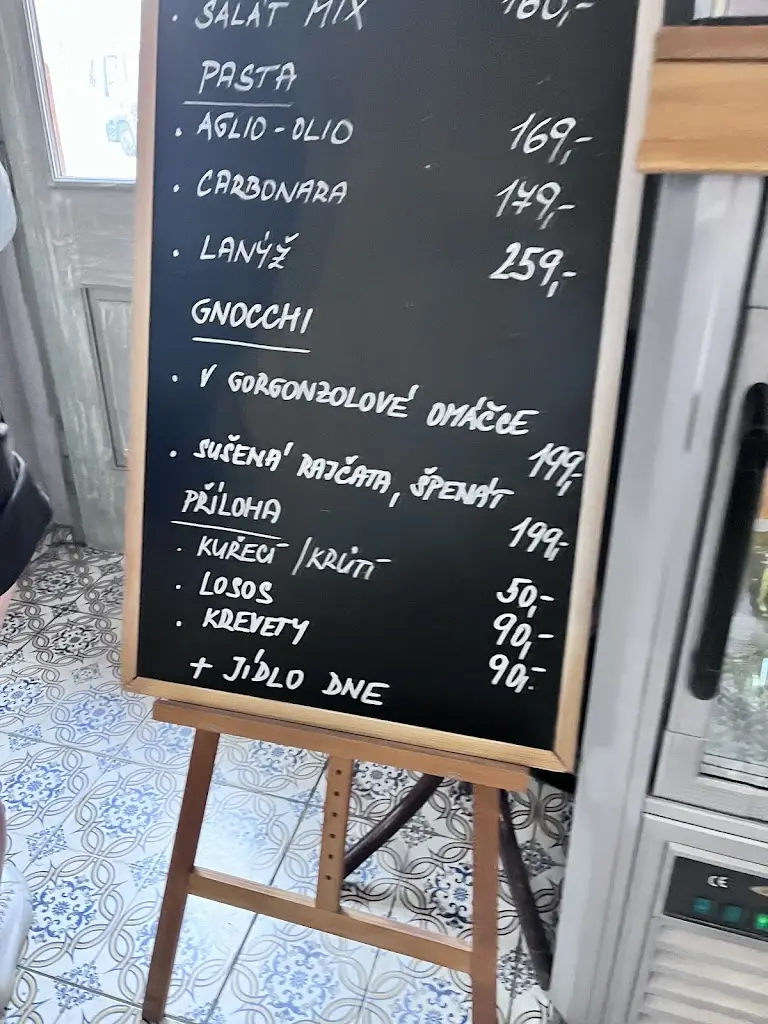 • SALÁT MIX 160,-
PASTA
• AGLIO-OLIO 169,-
• CARBONARA 179,-
• LANÝŽ 259,-
GNOCCHI
• V GORGONZOLOVÉ OMÁČCE 199,-
• SUŠENÁ RAJČATA, ŠPENÁT 199,-
PŘÍLOHA
• KUŘECÍ/KRŮTÍ 50,-
• LOSOS 90,-
• KREVETY 90,-
+ JÍDLO DNE
CE